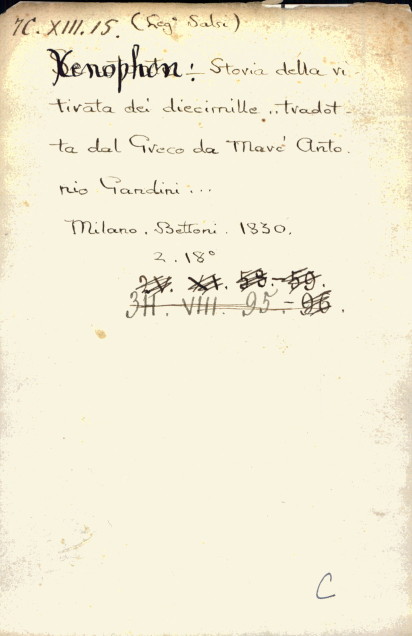 7C. XIII. 15. (Leg° Salsi)
Xenophon: - Storia della ri-
tirata dei diecimille .. tradot-
ta dal Greco da Marc' Anto-
nio Gandini ...
Milano. Bettoni. 1830.
2. 18°
VIII. 95 - 96.
C